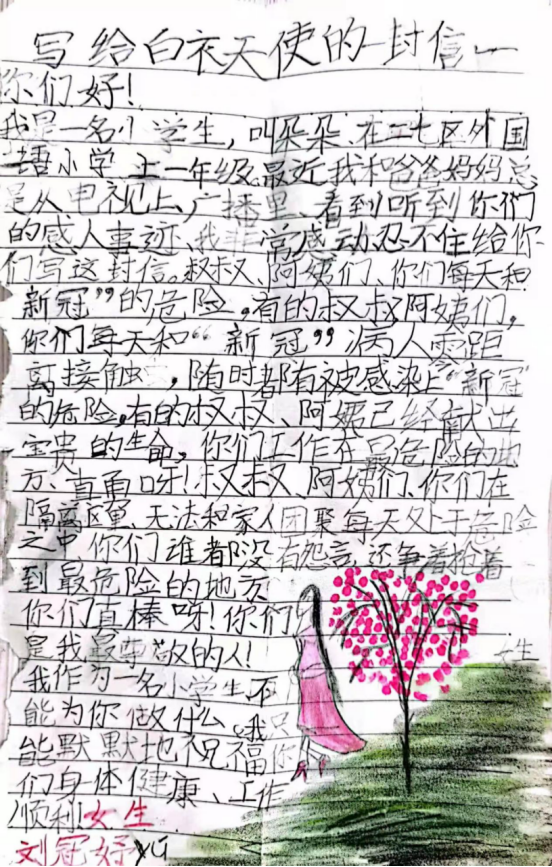 写给白衣天使的一封信
你们好！
我是一名小学生，叫朵朵、在二七区外国
语小学上一年级、最近我和爸爸妈妈总
是从电视上、广播里、看到听到你们
的感人事迹、我非常感动忍不住给你
们写这封信。叔叔、阿姨们、你们每天和
新冠”的危险，有的叔叔阿姨们，
你们每天和“新冠”病人零距
离接触，随时都有被感染上“新冠”
的危险，有的叔叔、阿姨已经献出
宝贵的生命，你们工作在最危险的地
方、真勇呀！叔叔、阿姨们、你们在
隔离区里、无法和家人团聚每天处于危险
之中你们谁都没有怨言，还争着抢着
到最危险的地方
你们真棒呀！你们
是我最尊敬的人！
我作为一名小学生，不
能为你做什么。我只
能默默地祝福你
们身体健康、工作
顺利女生
刘冠好
女生